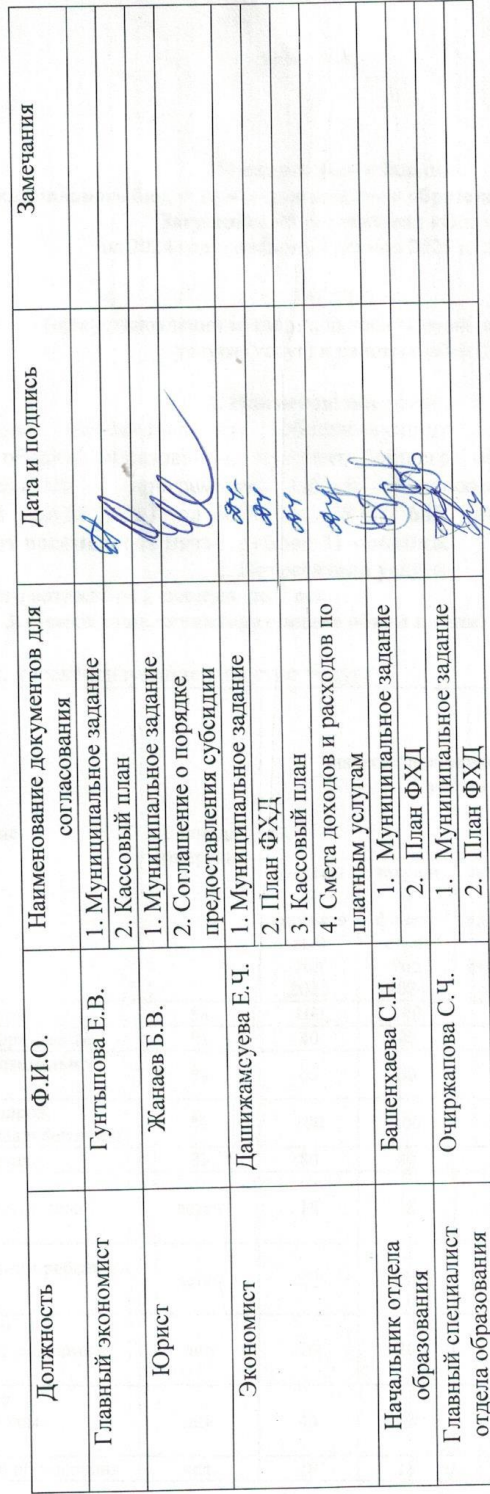 Должность Ф.И.О. Наименование документов для согласования Дата и подпись Замечания
Главный экономист Гунтыпова Е.В. 1. Муниципальное задание
2. Кассовый план
Юрист Жанаев Б.В. 1. Муниципальное задание
2. Соглашение о порядке
предоставления субсидии
Экономист Дашижамсуева Е.Ч. 1. Муниципальное задание
2. План ФХД
3. Кассовый план
4. Смета доходов и расходов по
платным услугам
Начальник отдела
образования Башенхаева С.Н. 1. Муниципальное задание
2. План ФХД
Главный специалист
отдела образования Очиржапова С.Ч. 1. Муниципальное задание
2. План ФХД